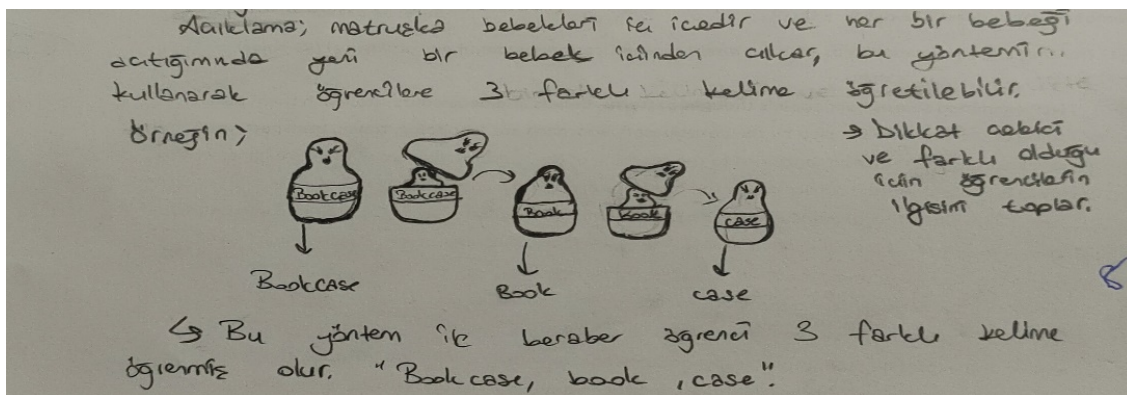 Açıklama; matruşka bebekleri iç içedir ve her bir bebeği
açtığımında yeni bir bebek içinden çıkar, bu yöntemin
kullanarak öğrencilere 3 farklı kelime öğretilebilir.
Örneğin;
→ Dikkat çekici
ve farklı olduğu
için öğrencilerin
ilgisini toplar.
Bookcase Bookcase Book Book case
Bookcase Book case
8
↳ Bu yöntem ile beraber öğrenci 3 farklı kelime
öğrenmiş olur. "Bookcase, book, case".